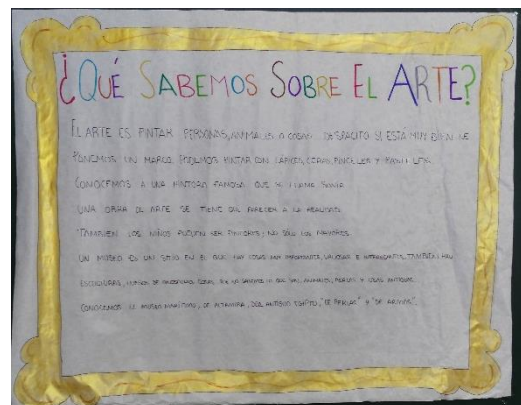 ¿QUÉ SABEMOS SOBRE EL ARTE?
EL ARTE ES PINTAR PERSONAS, ANIMALES O COSAS DESPACITO. SI ESTÁ MUY BIEN LE
PONEMOS UN MARCO. PODEMOS PINTAR CON LÁPICES, CERAS, PINCELES Y
CONOCEMOS A UNA PINTORA FAMOSA QUE SE LLAMA SONIA.
UNA OBRA DE ARTE SE TIENE QUE PARECER A LA REALIDAD.
TAMBIÉN LOS NIÑOS PUEDEN SER PINTORES; NO SÓLO LOS MAYORES.
UN MUSEO ES UN SITIO EN EL QUE HAY COSAS MUY IMPORTANTES, VALIOSAS E INTERESANTES. TAMBIÉN HAY
ESCULTURAS, HUESOS DE DINOSAURIO, COSAS QUE NO SABEMOS LO QUE SON, ANIMALES, Y COSAS ANTIGUAS.
CONOCEMOS EL MUSEO MARÍTIMO, DE ALTAMIRA, DEL ANTIGUO EGIPTO, Y "DE ARMAS".